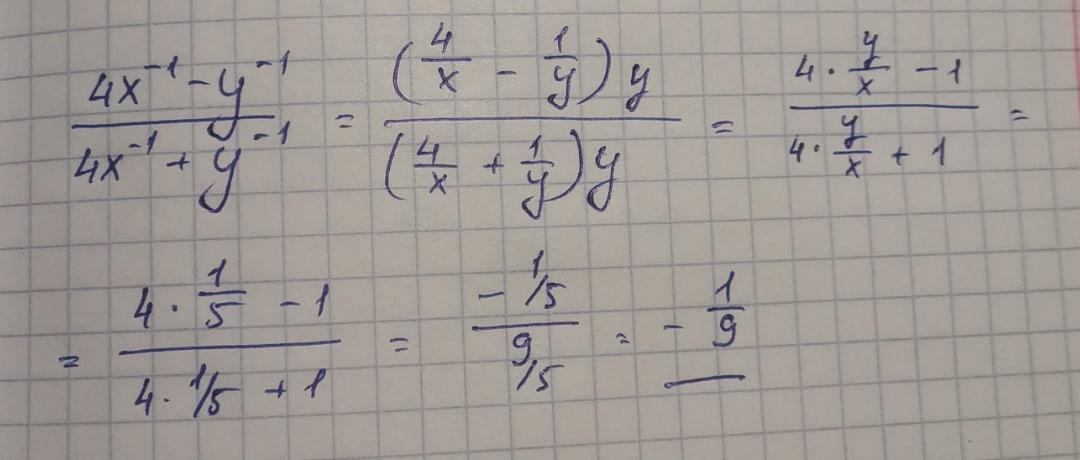 (4x⁻¹ - y⁻¹)/(4x⁻¹ + y⁻¹) = ((4/x - 1/y) y)/((4/x + 1/y) y) = (4 · y/x - 1)/(4 · y/x + 1) =
= (4 · 1/5 - 1)/(4 · 1/5 + 1) = (- 1/5)/(9/5) = - 1/9